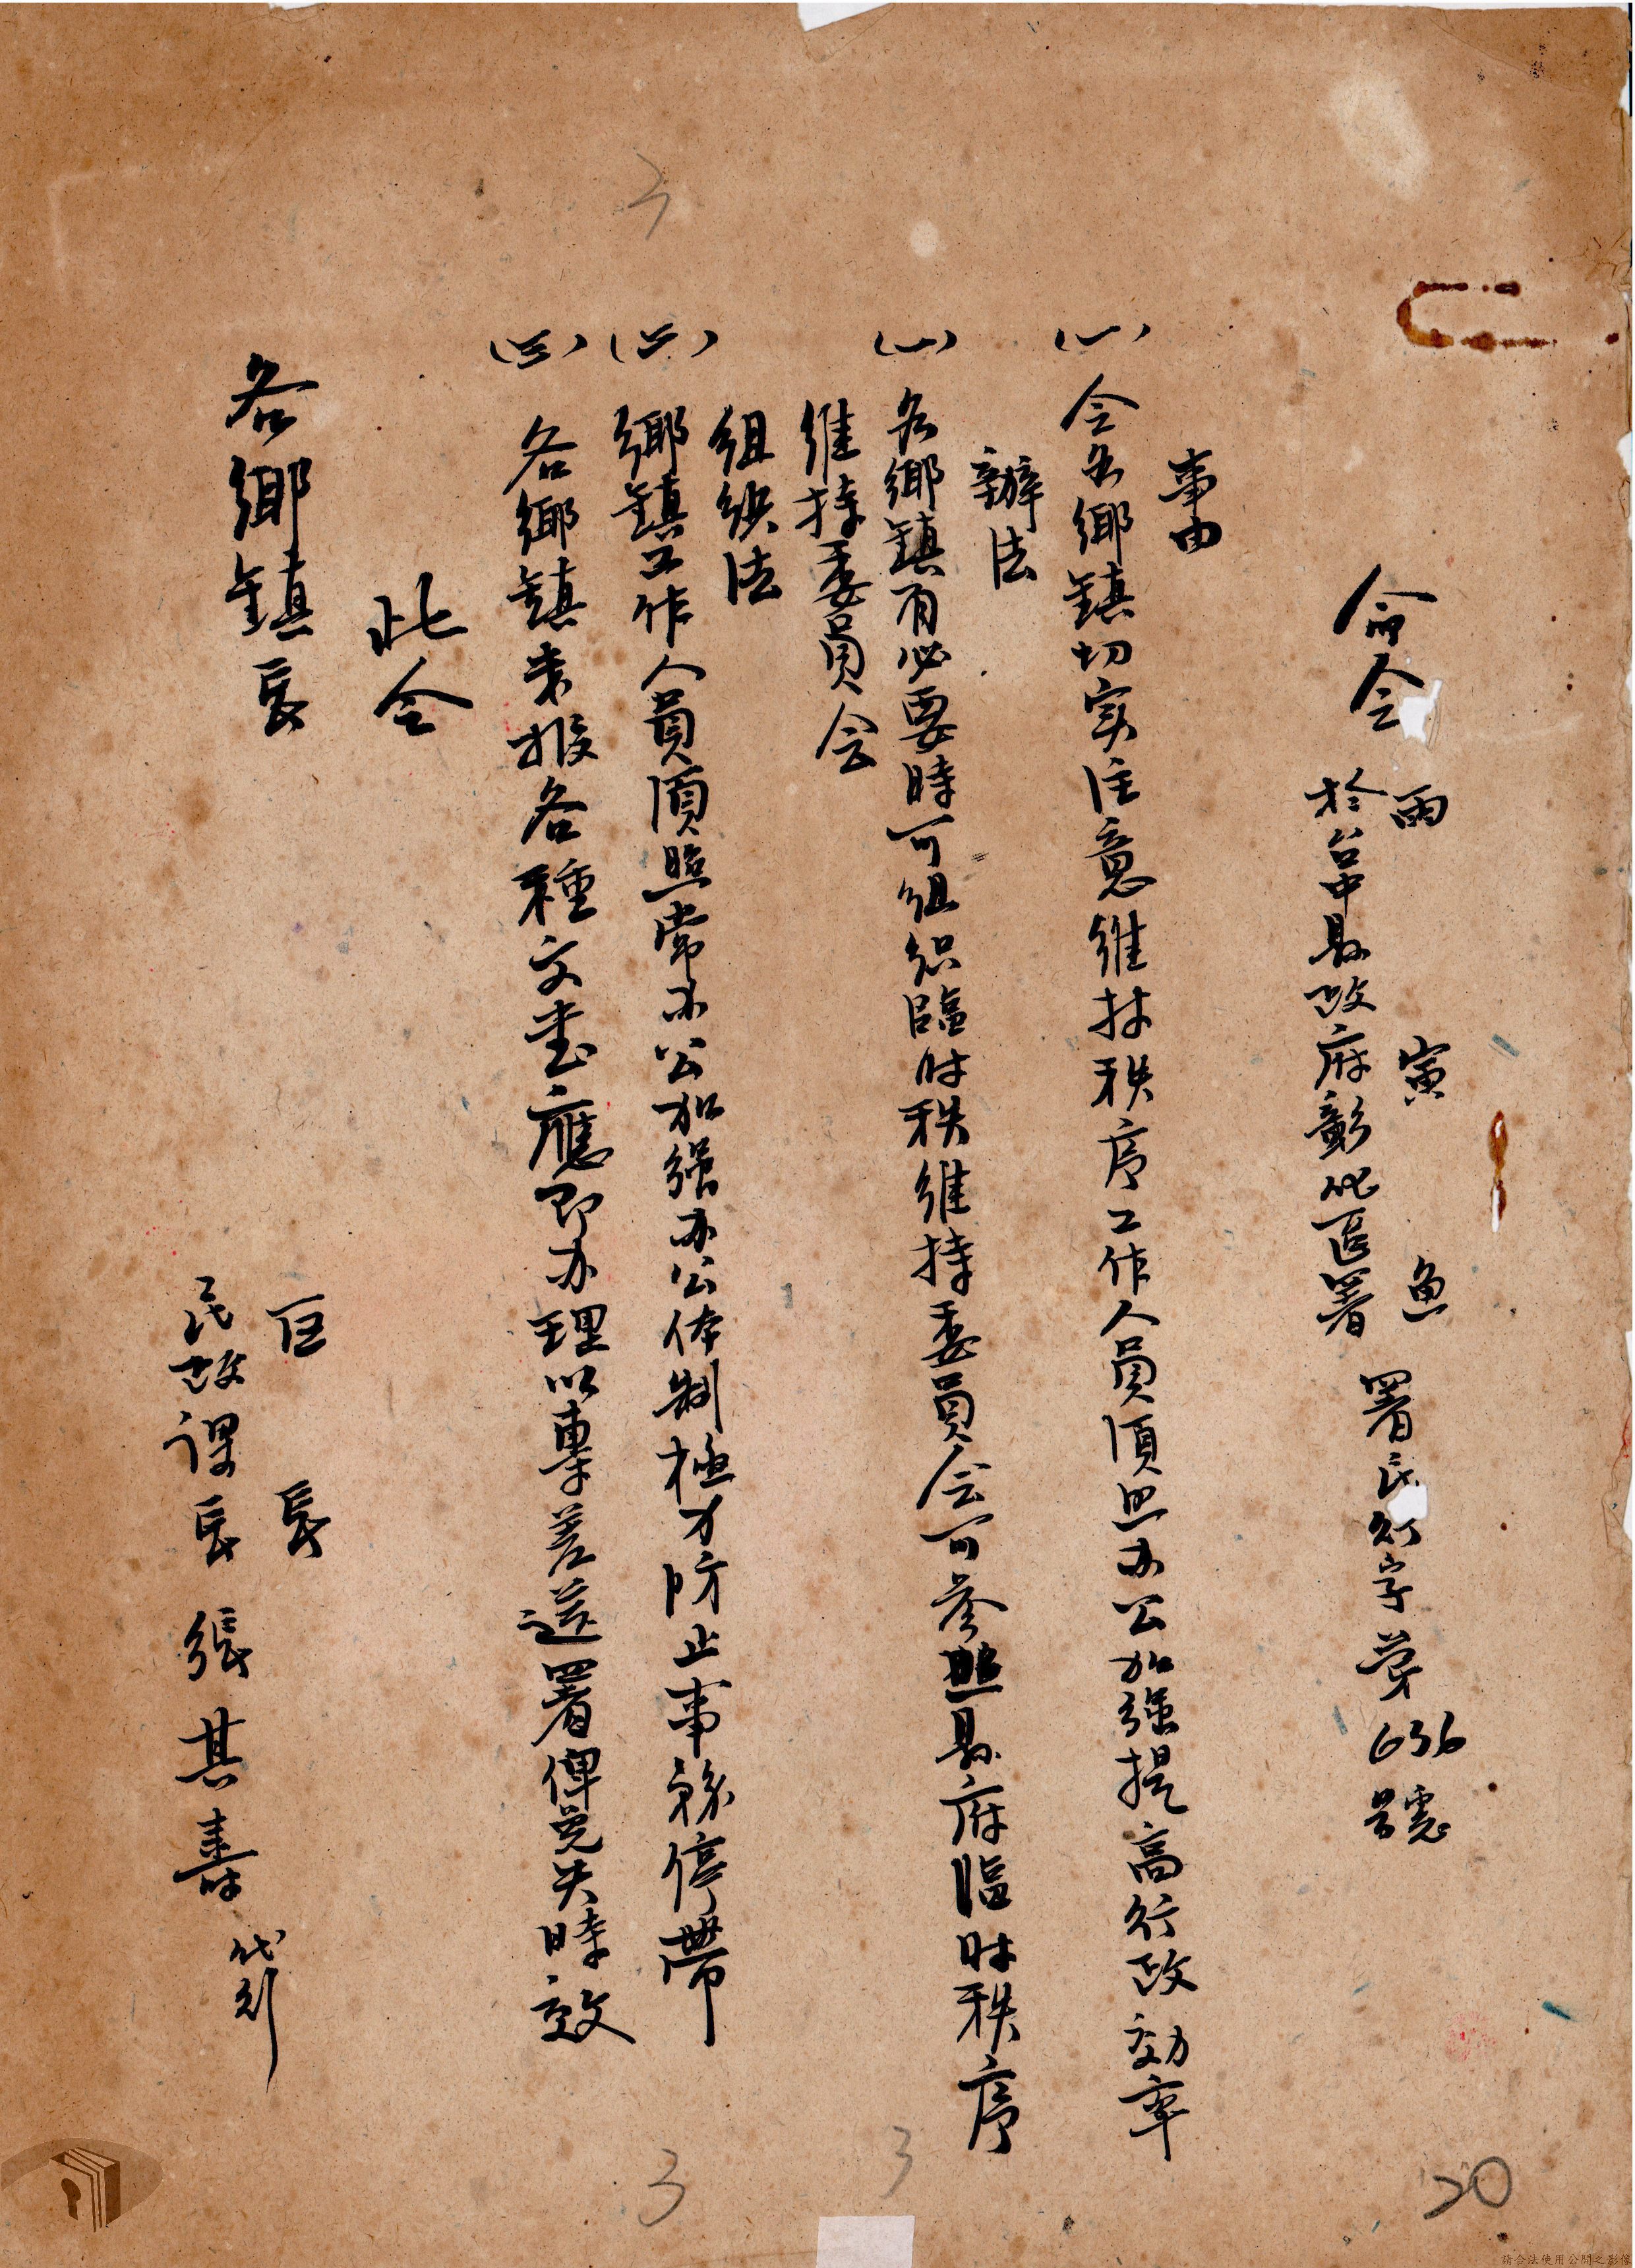 命令
雨 寅 魚
於台中县政府彰化區署 署民行字第656號
事由
(一) 令各鄉鎮切实注意維持秩序工作人員須照办公加强提高行政効率
辦法
(一) 各鄉鎮有必要時可组织臨时秩維持委員会可参照县府临时秩序
維持委員会
组织法
(二) 鄉鎮工作人員須照常办公加强办公体制極力防止事務停帶
(三) 各鄉鎮来报各種文書應即办理以專差送署俾免失時效
此令
各鄉鎮長
区 長
民政课長 張其壽 代行
3
3
3
20
請合法使用公開之影像